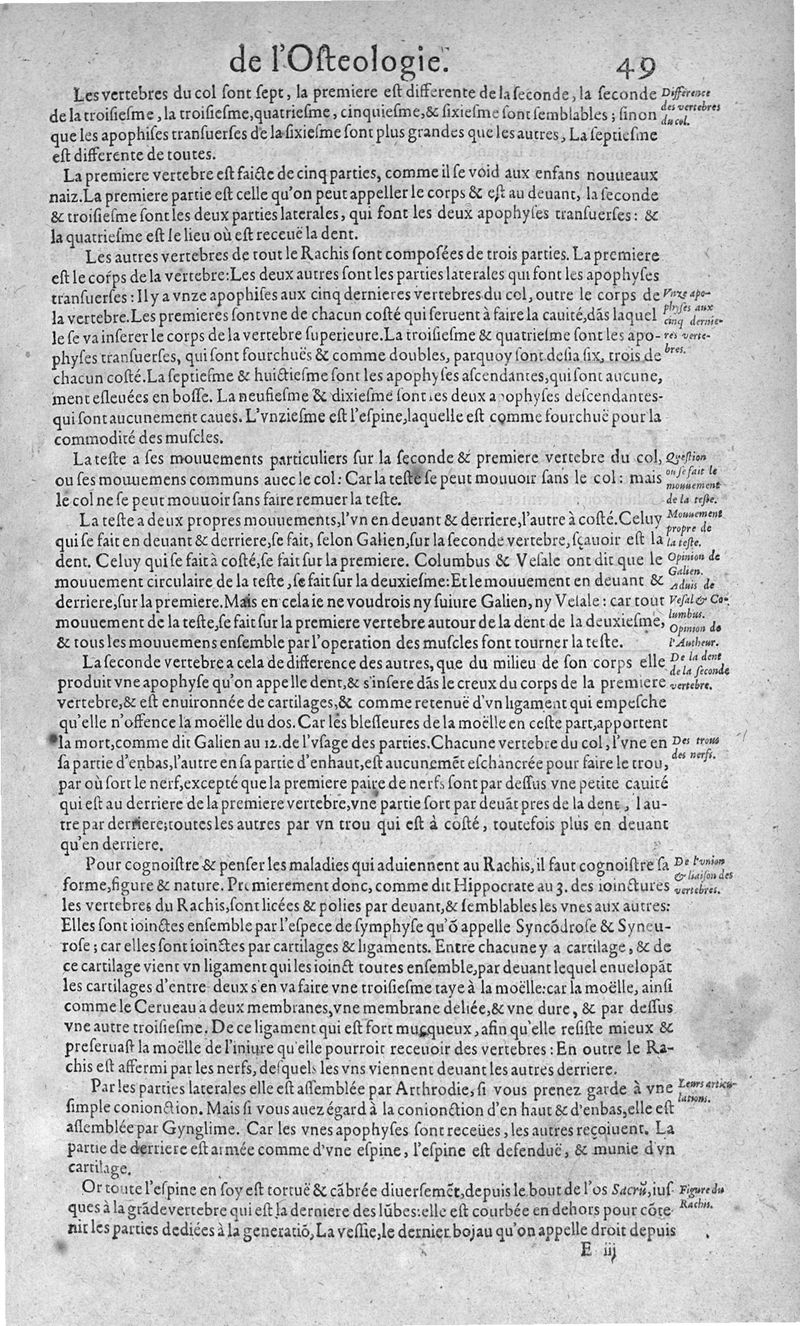 de l'Oſteologie.
49
Les vertebres du col ſont ſept, la premiere eſt differente de la ſeconde, la ſeconde
de la troiſieſme, la troiſieſme, quatrieſme, cinquieſme, & ſixieſme ſont ſemblables; ſinon
que les apophiſes tranſuerſes de la ſixieſme ſont plus grandes que les autres, La ſeptieſme
eſt differente de toutes.
Difference
des vertebres
du col.
La premiere vertebre eſt faicte de cinq parties, comme il ſe void aux enfans nouueaux
naiz. La premiere partie eſt celle qu'on peut appeller le corps & eſt au deuant, la ſeconde
& troiſieſme ſont les deux parties laterales, qui font les deux apophyſes tranſuerſes: &
la quatrieſme eſt le lieu où eſt receuë la dent.
Les autres vertebres de tout le Rachis ſont compoſées de trois parties. La premiere
eſt le corps de la vertebre: Les deux autres ſont les parties laterales qui font les apophyſes
tranſuerſes: Il y a vnze apophiſes aux cinq dernieres vertebres du col, outre le corps de
la vertebre. Les premieres ſont vne de chacun coſté qui ſeruent à faire la cauité, dãs laquel
le ſe va inſerer le corps de la vertebre ſuperieure. La troiſieſme & quatrieſme ſont les apo-
phyſes tranſuerſes, qui ſont fourchuës & comme doubles, parquoy ſont deſia ſix, trois de
chacun coſté. La ſeptieſme & huictieſme ſont les apophyſes aſcendantes, qui ſont aucune,
ment eſleuées en boſſe. La neufieſme & dixieſme ſont les deux apophyſes deſcendantes-
qui ſont aucunement caues. L'vnzieſme eſt l'eſpine, laquelle eſt comme fourchuë pour la
commodité des muſcles.
Vnze apo-
phyſes aux
cinq dernie-
res verte-
bres.
La teſte a ſes mouuements particuliers ſur la ſeconde & premiere vertebre du col,
ou ſes mouuemens communs auec le col: Car la teſte ſe peut mouuoir ſans le col: mais
le col ne ſe peut mouuoir ſans faire remuer la teſte.
Queſtion
ou ſe fait le
mouuement
de la teſte.
La teſte a deux propres mouuements, l'vn en deuant & derriere, l'autre à coſté. Celuy
qui ſe fait en deuant & derriere, ſe fait, ſelon Galien, ſur la ſeconde vertebre, ſçauoir eſt la
dent. Celuy qui ſe fait à coſté, ſe fait ſur la premiere. Columbus & Veſale ont dit que le
mouuement circulaire de la teſte, ſe fait ſur la deuxieſme: Et le mouuement en deuant &
derriere, ſur la premiere. Mais en cela ie ne voudrois ny ſuiure Galien, ny Veſale: car tout
mouuement de la teſte, ſe fait ſur la premiere vertebre autour de la dent de la deuxieſme,
& tous les mouuemens enſemble par l'operation des muſcles font tourner la teſte.
Mouuement
propre de
la teſte.
Opinion de
Galien.
Aduis de
Veſal & Co-
lumbus.
Opinion de
l'Autheur.
La ſeconde vertebre a cela de difference des autres, que du milieu de ſon corps elle
produit vne apophyſe qu'on appelle dent, & s'inſere dãs le creux du corps de la premiere
vertebre, & eſt enuironnée de cartilages, & comme retenuë d'vn ligament qui empeſche
qu'elle n'offence la moëlle du dos. Car les bleſſeures de la moëlle en ceſte part, apportent
la mort, comme dit Galien au 12. de l'vſage des parties. Chacune vertebre du col, l'vne en
ſa partie d'enbas, l'autre en ſa partie d'enhaut, eſt aucunemẽt eſchancrée pour faire le trou,
par où ſort le nerf, excepté que la premiere paire de nerfs ſont par deſſus vne petite cauité
qui eſt au derriere de la premiere vertebre, vne partie ſort par deuãt pres de la dent, l'au-
tre par derriere; toutes les autres par vn trou qui eſt à coſté, toutefois plus en deuant
qu'en derriere.
De la dent
de la ſeconde
vertebre.
Des trous
des nerfs.
Pour cognoiſtre & penſer les maladies qui aduiennent au Rachis, il faut cognoiſtre ſa
forme, figure & nature. Premierement donc, comme dit Hippocrate au 3. des ioinctures
les vertebres du Rachis, ſont licées & polies par deuant, & ſemblables les vnes aux autres:
Elles ſont ioinctes enſemble par l'eſpece de ſymphyſe qu'õ appelle Syncõdroſe & Syneu-
roſe; car elles ſont ioinctes par cartilages & ligaments. Entre chacune y a cartilage, & de
ce cartilage vient vn ligament qui les ioinct toutes enſemble, par deuant lequel enuelopãt
les cartilages d'entre deux s'en va faire vne troiſieſme taye à la moëlle: car la moëlle, ainſi
comme le Cerueau a deux membranes, vne membrane deliée, & vne dure, & par deſſus
vne autre troiſieſme. De ce ligament qui eſt fort muqueux, afin qu'elle reſiſte mieux &
preſeruaſt la moëlle de l'iniure qu'elle pourroit receuoir des vertebres: En outre le Ra-
chis eſt affermi par les nerfs, deſquels les vns viennent deuant les autres derriere.
De l'vnion
& liaiſon des
vertebres.
Par les parties laterales elle eſt aſſemblée par Arthrodie, ſi vous prenez garde à vne
ſimple conionction. Mais ſi vous auez égard à la conionction d'en haut & d'enbas, elle eſt
aſſemblée par Gynglime. Car les vnes apophyſes ſont receües, les autres reçoiuent. La
partie de derriere eſt armée comme d'vne eſpine, l'eſpine eſt defenduë, & munie d'vn
cartilage.
Leurs articu-
lations.
Or toute l'eſpine en ſoy eſt tortuë & cãbrée diuerſemẽt, depuis le bout de l'os Sacrũ, iuſ
ques à la grãde vertebre qui eſt la derniere des lũbes: elle eſt courbée en dehors pour cõte
nir les parties dediées à la generatiõ, La veſſie, le dernier bojau qu'on appelle droit depuis
Figure du
Rachis.
E iij